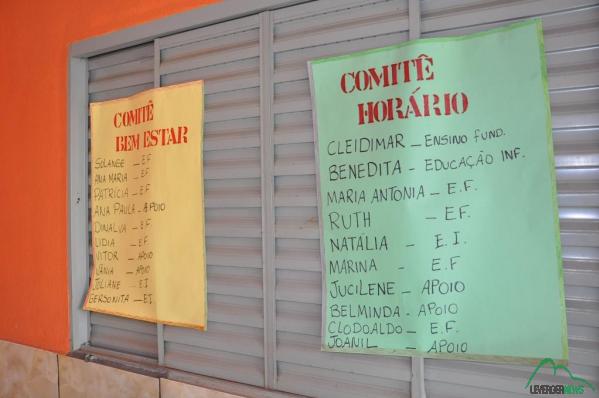 COMITÊ
BEM ESTAR
SOLANGE - E.F
ANA MARIA - E.F.
PATRÍCIA - E.F.
ANA PAULA - APOIO
DINALVA - E.F
LIDIA - E.F.
VITOR - APOIO
VÂNIA - APOIO
JULIANE - E.I
GERSONITA - E.I
COMITÊ
HORÁRIO
CLEIDIMAR - ENSINO FUND.
BENEDITA - EDUCAÇÃO INF.
MARIA ANTONIA - E.F.
RUTH - E.F.
NATÁLIA - E.I.
MARINA - E.F
JUCILENE - APOIO
BELMINDA - APOIO
CLODOALDO - E.F.
JOANIL - APOIO
LEVERGERNEWS